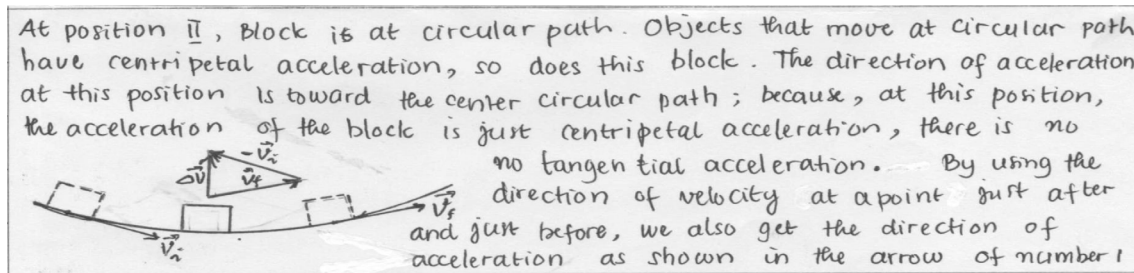 At position II, Block is at circular path. Objects that move at circular path
have centripetal acceleration, so does this block. The direction of acceleration
at this position is toward the center circular path; because, at this position,
the acceleration of the block is just centripetal acceleration, there is no
no tangential acceleration. By using the
direction of velocity at a point just after
and just before, we also get the direction of
acceleration as shown in the arrow of number 1
Δv⃗ -v⃗i
v⃗f
v⃗i
v⃗f